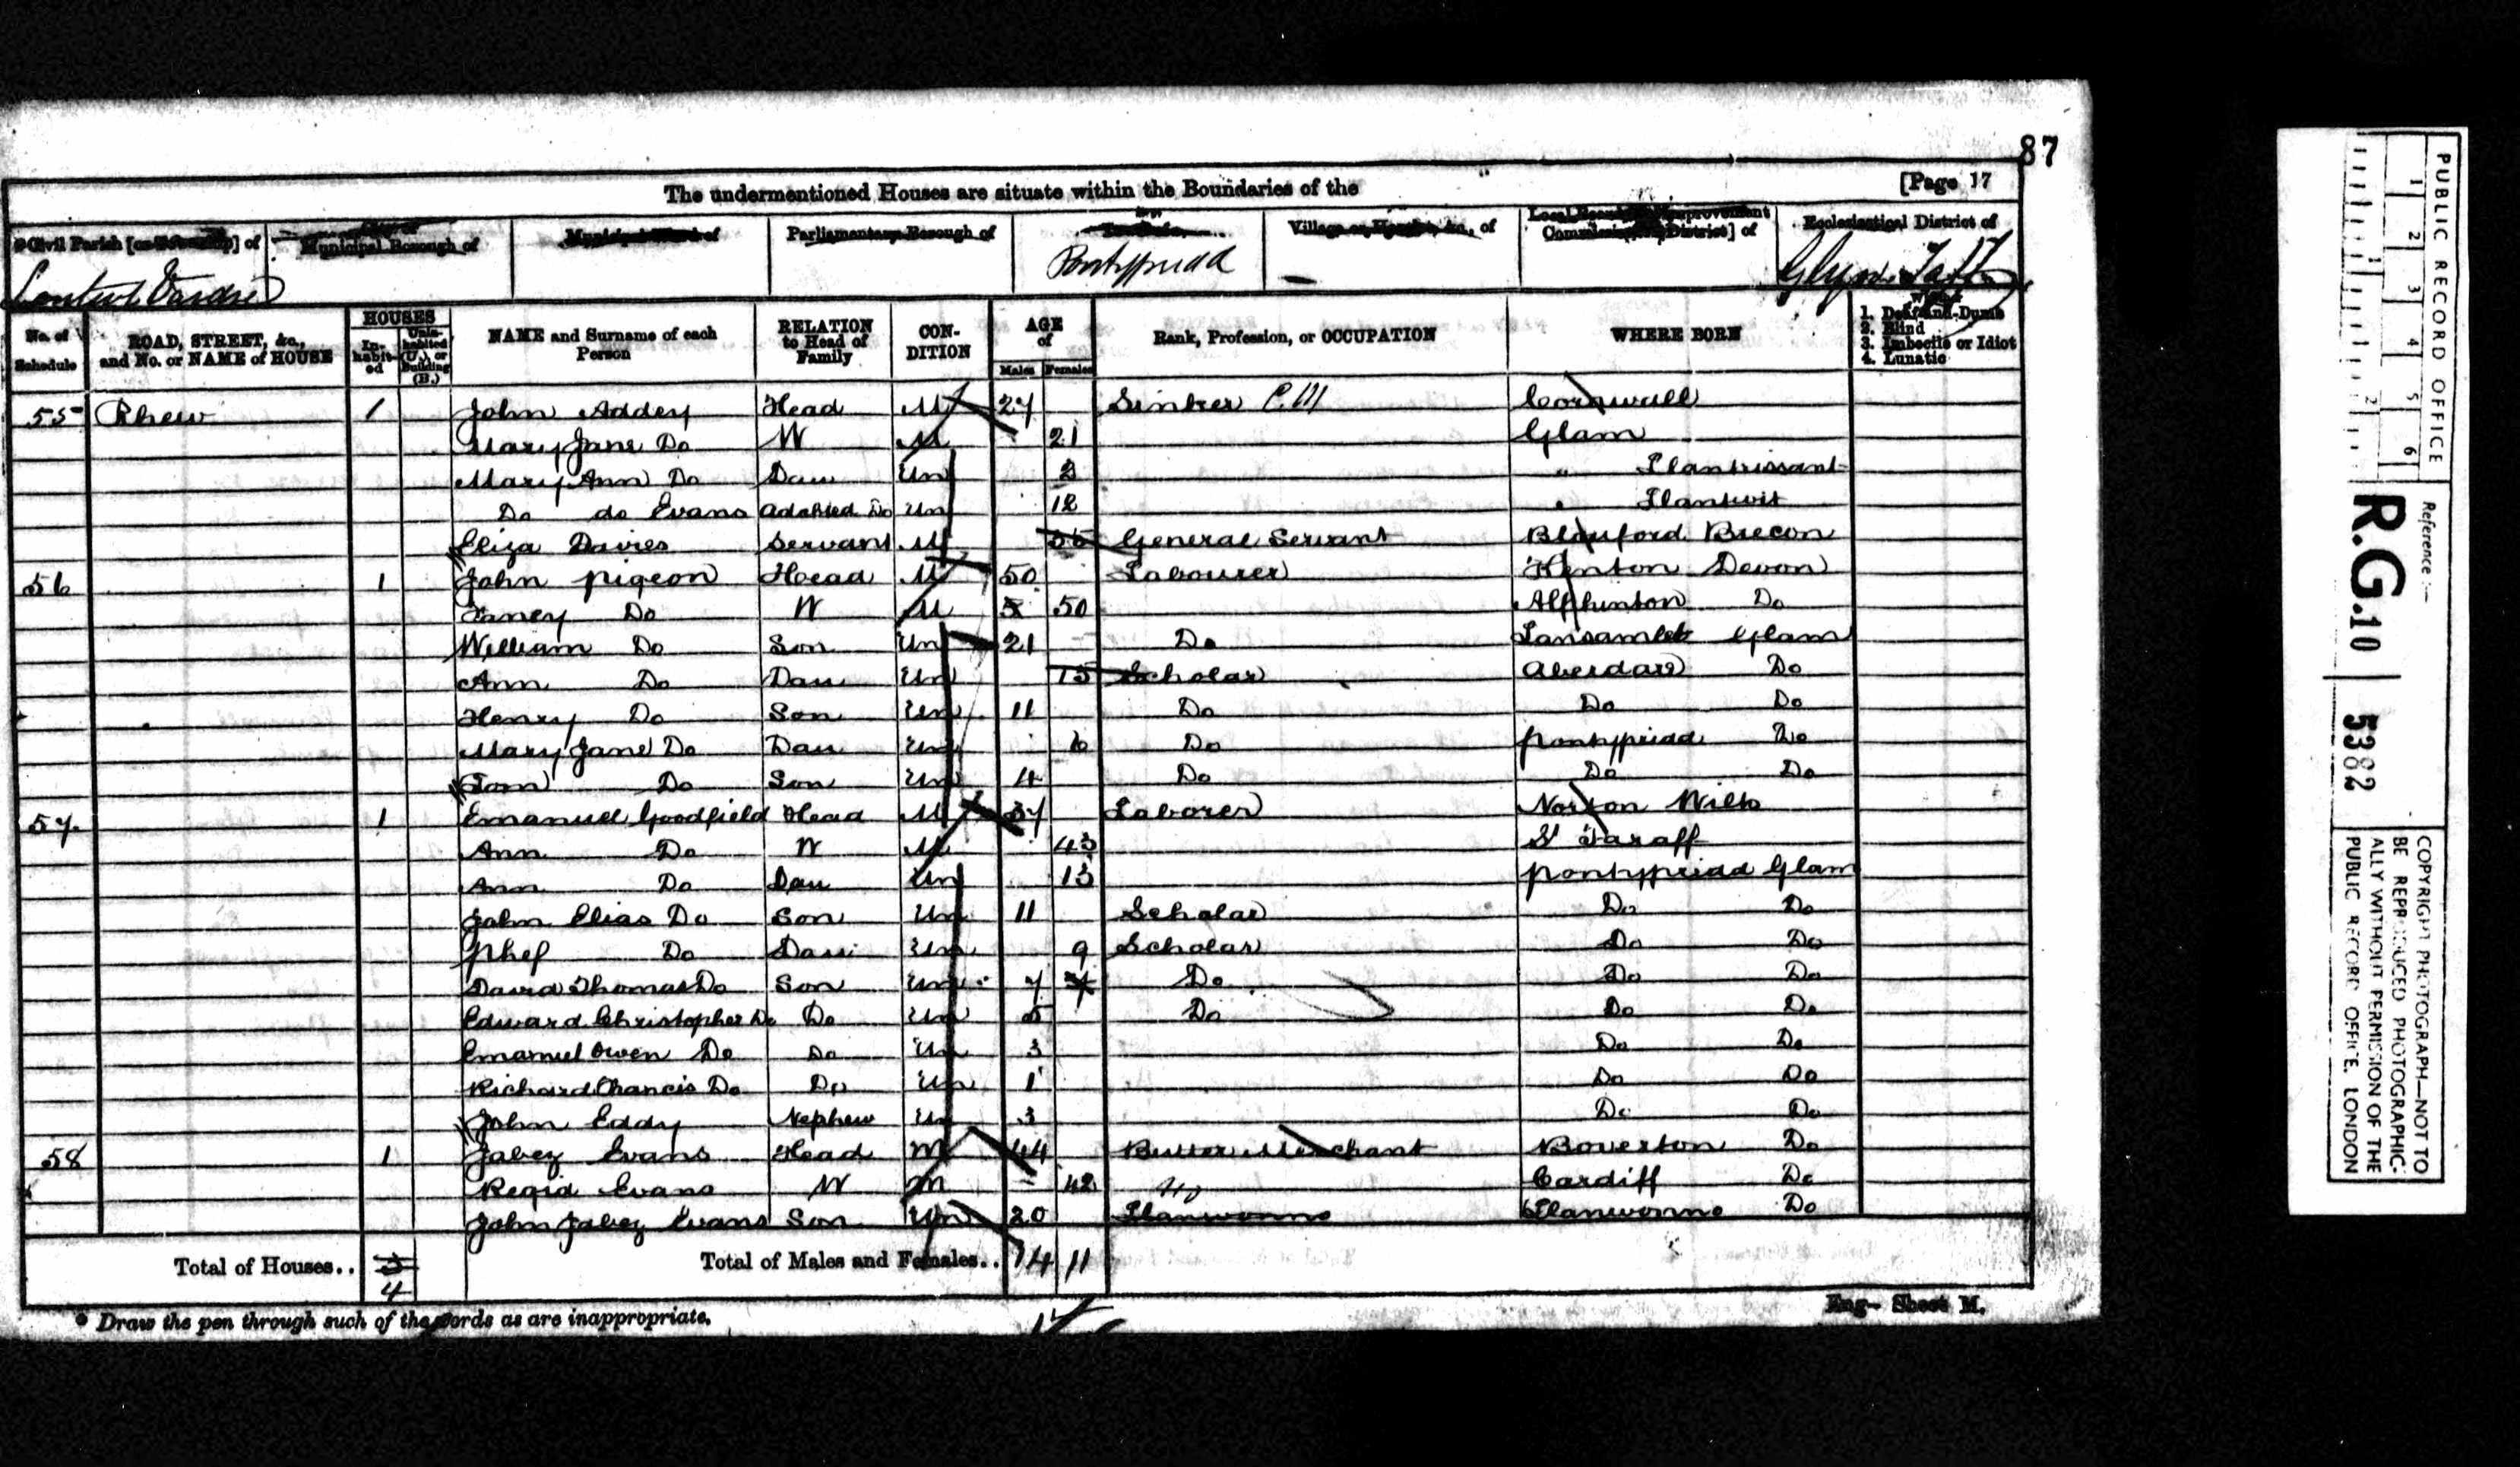 87
The undermentioned Houses are situate within the Boundaries of the [Page 17
Civil Parish [or Township] of Municipal Borough of Municipal Ward of Parliamentary Borough of Village or Hamlet, &c., of Local Board, or [Improvement Commissioners District] of Ecclesiastical District of
Pontypridd Glyn Taff
No. of Schedule ROAD, STREET, &c., and No. or NAME of HOUSE HOUSES Inhabited Uninhabited (U.), or Building (B.) NAME and Surname of each Person RELATION to Head of Family CONDITION AGE of Males Females Rank, Profession, or OCCUPATION WHERE BORN Whether 1. Deaf-and-Dumb 2. Blind 3. Imbecile or Idiot 4. Lunatic
55 Rhew 1 John Addey Head M 27 Sinker C.M Cornwall
Mary Jane Do W M 21 Glam
Mary Ann Do Dau Un 2 " Llantrissant
Do do Evans Adopted Do Un 12 " Llantwit
Eliza Davies Servant M General Servant Brecon
56 1 John pigeon Head M 50 Labourer Kenton Devon
Do W M 50 Alphinton Do
William Do Son Un 21 Do Lansamlet Glam
Ann Do Dau Un 15 Scholar Aberdare Do
Henry Do Son Un 11 Do Do Do
Mary Jane Do Dau Un 6 Do pontypridd Do
Tom Do Son Un 4 Do Do Do
57 1 Emanuel Goodfield Head M 37 Laborer Norton Wilts
Ann Do W M 43
Ann Do Dau Un 13 pontypridd Glam
John Elias Do Son Un 11 Scholar Do Do
Do Dau Un 9 Scholar Do Do
David Thomas Do Son Un 7 Do Do Do
Edward Christopher Do Do Un 5 Do Do Do
Emanuel Owen Do Do Un 3 Do Do
Richard Do Do Un 1 Do Do
John Eddy Nephew Un 3 Do Do
58 1 Jabez Evans Head M 44 Butter Merchant Boverton Do
Evans W M 42 Cardiff Do
John Jabez Evans Son Un 20 Llanwonno Llanwonno Do
Total of Houses.. 3 4 Total of Males and Females.. 14 11
* Draw the pen through such of the words as are inappropriate.
Eng- Sheet M.
PUBLIC RECORD OFFICE
1 2 3 4 5 6
1 2
Reference :-
R.G.10 5382
COPYRIGHT PHOTOGRAPH—NOT TO
BE REPRODUCED PHOTOGRAPHIC-
ALLY WITHOUT PERMISSION OF THE
PUBLIC RECORD OFFICE, LONDON